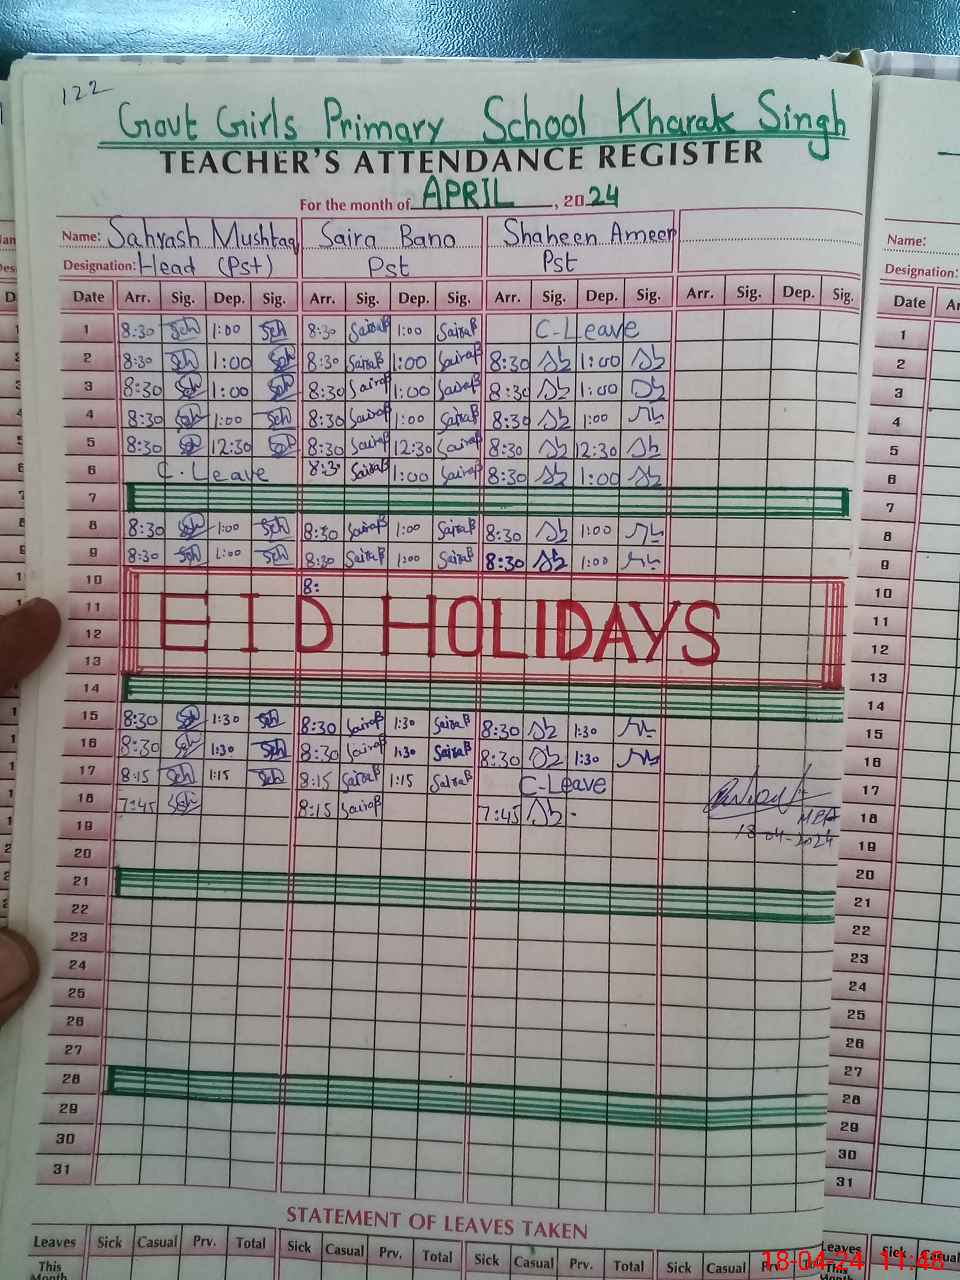 122
Govt Girls Primary School Kharak Singh
TEACHER'S ATTENDANCE REGISTER
For the month of APRIL, 2024
Name: Sahrash Mushtaq Saira Bano Shaheen Ameer Name:
Designation: Head (Pst) Pst Pst Designation:
Date Arr. Sig. Dep. Sig. Arr. Sig. Dep. Sig. Arr. Sig. Dep. Sig. Arr. Sig. Dep. Sig. Date
1 8:30 Sch 1:00 Sch 8:30 SairaB 1:00 SairaB C-Leave 1
2 8:30 Sch 1:00 Sch 8:30 SairaB 1:00 SairaB 8:30 1:00 2
3 8:30 Sch 1:00 Sch 8:30 SairaB 1:00 SairaB 8:30 1:00 3
4 8:30 Sch 1:00 Sch 8:30 SairaB 1:00 SairaB 8:30 1:00 4
5 8:30 Sch 12:30 Sch 8:30 SairaB 12:30 SairaB 8:30 12:30 5
6 C-Leave 8:3 SairaB 1:00 SairaB 8:30 1:00 6
7 7
8 8:30 Sch 1:00 Sch 8:30 SairaB 1:00 SairaB 8:30 1:00 8
9 8:30 Sch 1:00 Sch 8:30 SairaB 1:00 SairaB 8:30 1:00 9
10 8: 10
11 EID HOLIDAYS 11
12 12
13 13
14 14
15 8:30 Sch 1:30 Sch 8:30 SairaB 1:30 SairaB 8:30 1:30 15
16 8:30 Sch 1:30 Sch 8:30 SairaB 1:30 SairaB 8:30 1:30 16
17 8:15 Sch 1:15 Sch 8:15 SairaB 1:15 SairaB C-Leave 17
18 7:45 Sch 8:15 SairaB 7:45 18
18-04-2024
19 19
20 20
21 21
22 22
23 23
24 24
25 25
26 26
27 27
28 28
29 29
30 30
31 31
STATEMENT OF LEAVES TAKEN
Leaves Sick Casual Prv. Total Sick Casual Prv. Total Sick Casual Prv. Total Sick Casual Prv. Leaves Sick Casual
This Month This Month
18-04-24 11:48